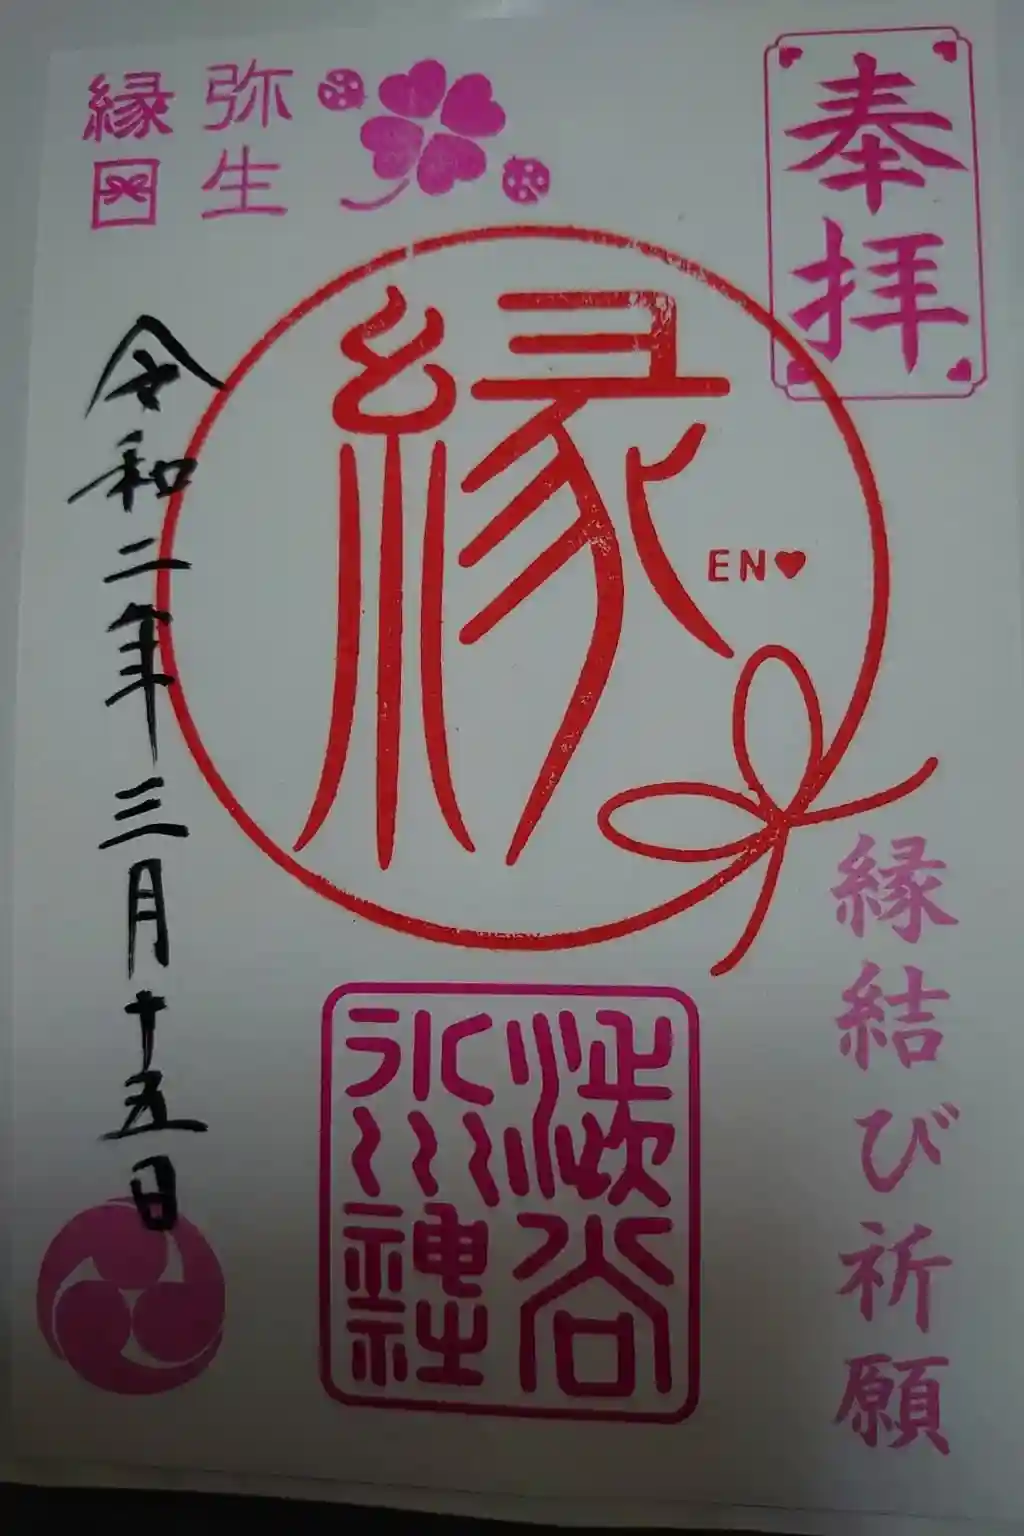 奉拝
縁結び祈願
弥生
縁日
縁
EN♥
渋谷
氷川
神社
令和二年三月十五日